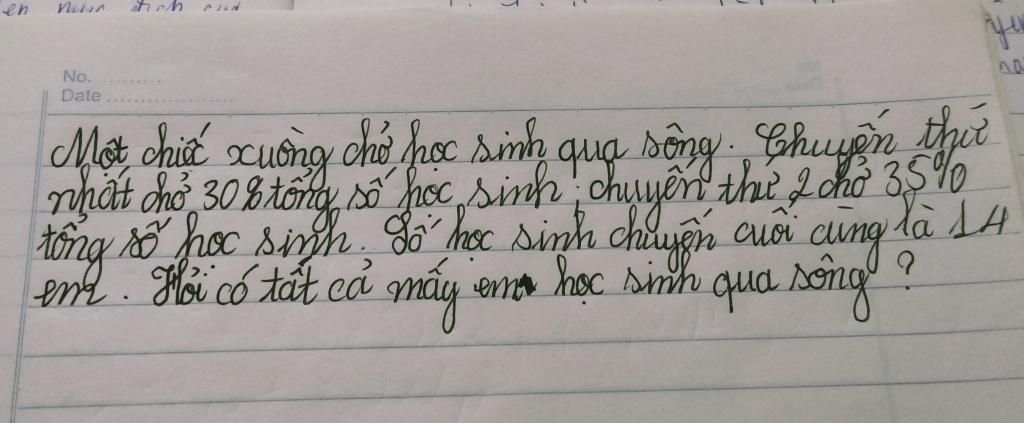 No. ..........
Date ....................
Một chiếc xuồng chở học sinh qua sông. Chuyến thứ
nhất chở 30% tổng số học sinh, chuyến thứ 2 chở 35%
tổng số học sinh. Số học sinh chuyến cuối cùng là 14
em. Hỏi có tất cả mấy em học sinh qua sông?